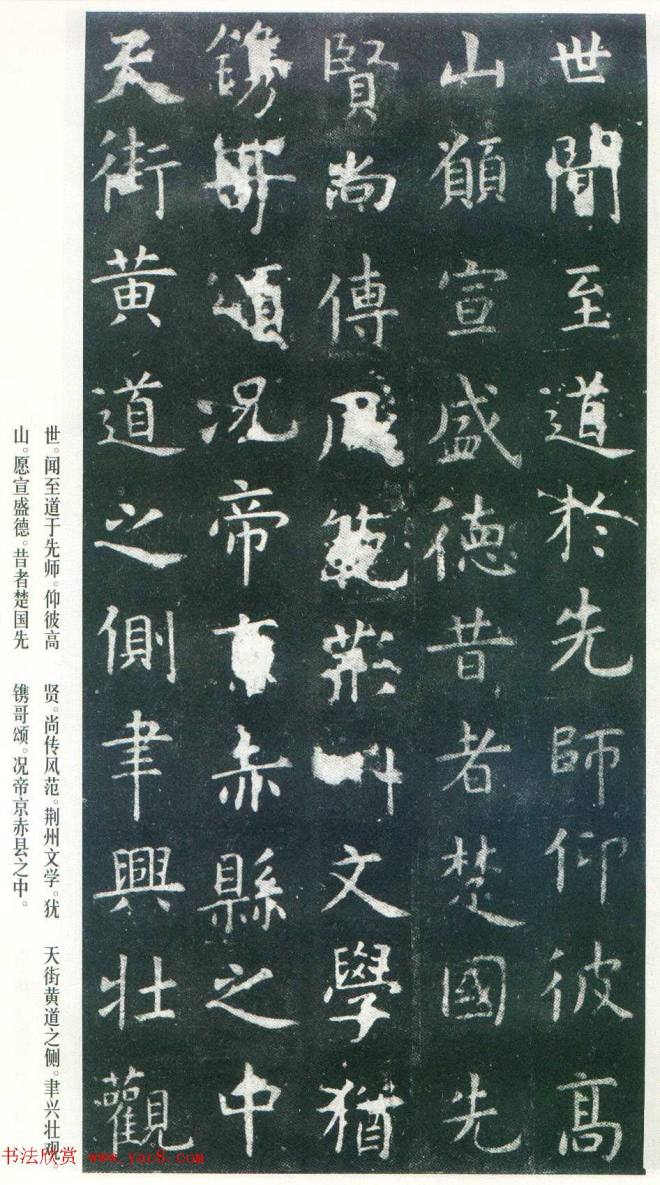 世闻至道於先師仰彼高
山願宣盛德昔者楚國先
賢尚傳風範荊州文學猶
鐫哥頌况帝京赤縣之中
天街黄道之側聿興壯觀
世。闻至道于先师。仰彼高
山。愿宣盛德。昔者楚国先
贤。尚传风范。荆州文学。犹
镌哥颂。况帝京赤县之中。
天街黄道之侧。聿兴壮观。
书法欣赏 www.yac8.com